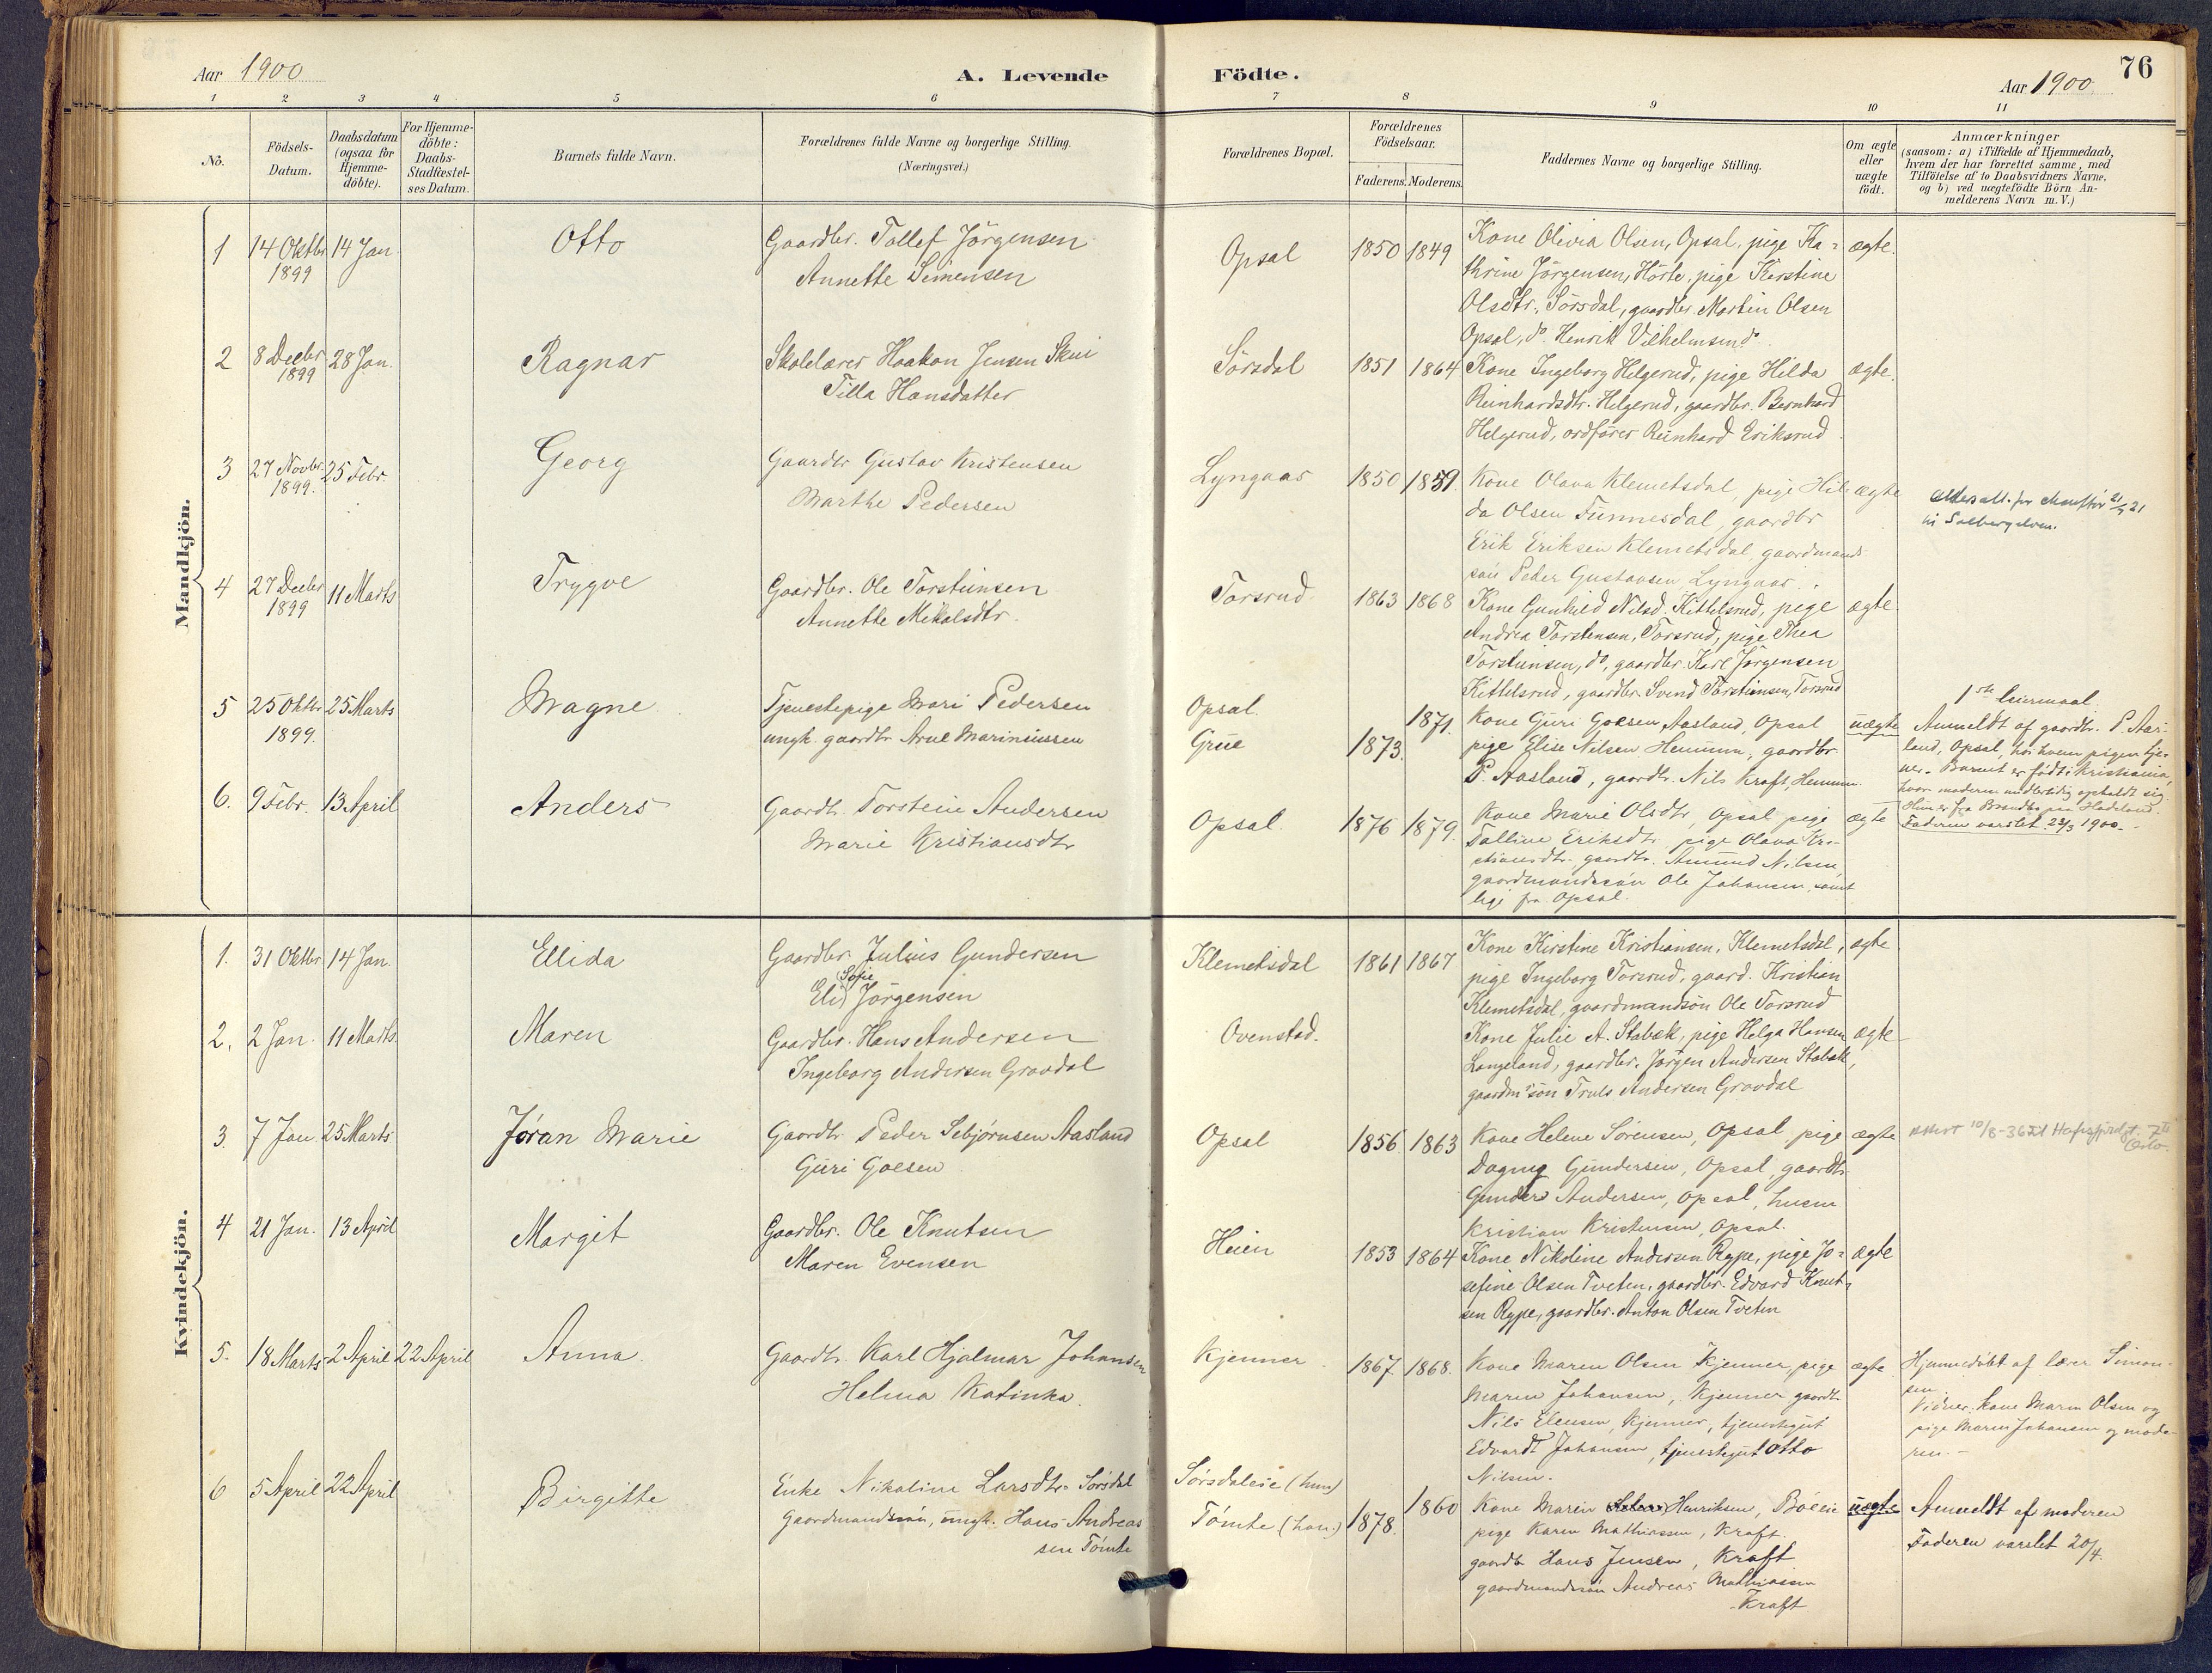 Aar 1900
A. Levende Födte.
76
Aar 1900.
1 2 3 4 5 6 7 8 9 10 11
No.
Födsels-
Datum.
Daabsdatum
(ogsaa for
Hjemme-
döbte).
For Hjemme-
döbte:
Daabs-
Stadfæstel-
ses Datum.
Barnets fulde Navn.
Forældrenes fulde Navne og borgerlige Stilling.
(Næringsvei.)
Forældrenes Bopæl.
Forældrenes
Födselsaar.
Faderens. Moderens.
Faddernes Navne og borgerlige Stilling.
Om ægte
eller
uægte
födt.
Anmærkninger
(saasom: a) i Tilfælde af Hjemmedaab,
hvem der har forrettet samme, med
Tilföielse af to Daabsvidners Navne,
og b) ved uægtefödte Börn An-
melderens Navn m. V.)
Mandkjön.
1 14 Oktbr 14 Jan.
1899
Otto
Gaardbr. Tollef Jörgensen
Annette Simensen
Opsal 1850 1849
Kone Olivia Olsen, Opsal, pige Ka=
thrine Jörgensen, Hörte, pige Kirstine
Olsdtr. Sörsdal, gaardbr. Martin Olsen
Opsal, do Henrik Vilhelmsen do.
ægte.
2 8 Decbr 28 Jan.
1899
Ragnar
Skolelærer Haakon Jensen Skui
Tilla Hansdatter
Sörsdal 1851 1864
Kone Ingeborg Helgerud, pige Hilda
Reinhardsdtr. Helgerud, gaardbr. Bernhard
Helgerud, ordförer Reinhard Eriksrud
ægte.
3 27 Novbr. 25 Febr.
1899.
Georg
Gaardbr Gustav Kristensen
Marthe Pedersen
Lyngaas 1850 1859.
Kone Olava Klemetsdal, pige Hil-
da Olsen Funnesdal, gaardbr
Erik Eriksen Klemetsdal, gaardmands
søn Peder Gustavsen Lyngaas.
ægte
4 27 Decbr 11 Marts
1899
Trygve
Gaardbr. Ole Torsteinsen
Annette Mikalsdtr.
Torsrud 1863 1868
Kone Gunhild Nilsd. Kittelsrud, pige
Andrea Torstensen, Torsrud, pige Thea
Torsteinsen, do, gaardbr. Karl Jörgensen
Kittelsrud, gaardbr. Svend Torsteinsen, Torsrud
ægte.
5 25 Oktbr 25 Marts
1899.
Magne
Tjenestepige Mari Pedersen
ungk. gaardbr Arne Marinsiussen
Opsal.
Grue
1873. 1871.
Kone Guri Goesen Aasland, Opsal
pige Elise Nilsen Hemmen, gaardbr.
P. Aasland, gaardbr. Nils Kraft, Hemmen
uægte
1ste leiermaal.
Anmeldt af gaardbr. P. Aas-
land, Opsal, hos hvem pigen tje-
ner. Barnet er født i Kristiania,
hvor moderen midlertidig opholdt sig.
Hun er fra Brandbu paa Hadeland.
Faderen varslet 24/3 1900.
6. 9 Febr. 13 April
Anders
Gaardbr. Torstein Andersen
Marie Kristiansdtr
Opsal. 1876 1879.
Kone Marie Olsdtr, Opsal pige
Talline Eriksdtr, pige Olava Kri-
stiansdtr. gaardbr. Amund Nilsen,
gaardmandssøn Ole Johansen, samt
lige fra Opsal.
ægte
Kvindekjön.
1. 31 Oktbr. 14 Jan.
Ellida
Gaardbr. Julius Gundersen
Eli Sofie Jörgensen
Klemetsdal 1861 1867
Kone Kirstine Kristiansen, Klemetsdal,
pige Ingeborg Torsrud, gaard. Kristian
Klemetsdal, gaardmandsön Ole Torsrud
ægte
2. 2 Jan. 11 Marts.
Maren
Gaardbr. Hans Andersen
Ingeborg Andersen Grovdal
Ovenstad.
Kone Julie A. Stabæk, pige Helga Hansen
Langeland, gaardbr. Jörgen Andersen Stabæk,
gaardm'sön Truls Andersen Grovdal
ægte
3 7 Jan 25 Marts
Jøran Marie
Gaardbr. Peder Sebjørnsen Aasland
Guri Goesen
Opsal 1856. 1863
Kone Helene Sørensen, Opsal, pige
Dagny Gundersen, Opsal, gaardbr
Gunder Andersen, Opsal, husm
Kristian Kristensen, Opsal.
ægte
4 21 Jan. 13 April
Margit
Gaardbr. Ole Knutsen
Maren Evensen
Heien 1853 1864
Kone Nikoline Andersen Rype, pige Jo=
sefine Olsen Tveten, gaardbr. Edvard Knut-
sen Rype, gaardbr. Anton Olsen Tveten
ægte
5. 18 Marts 2 April 22 April
Anna.
Gaardbr. Karl Hjalmar Johansen
Helma Katinka.
Kjenner 1867. 1868.
Kone Maren Olsen Kjenner, pige
Maren Johansen, Kjenner gaardbr
Nils Elensen, Kjenner, tjenestegut
Edvardt Johansen, tjenestegut Otto
Nilsen.
ægte
Hjemmedøbt af lærer Simon-
sen.
Vidner: kone Maren Olsen og
pige Maren Johansen og mode-
ren.
6 5 April 22 April
Birgitte
Enke Nikoline Larsdtr. Sørsdal
Gaardmandssøn, ungk. Hans Andreas
sen Tømte
Sørsdaleie (hun)
Tømte (han.)
1878. 1860
Kone Maren Henriksen, Bøeie
pige Karen Mathiassen, Kraft.
gaardbr Hans Jensen, Kraft
gaardmandssøn Andreas Mathiassen
Kraft
uægte
Anmeldt af moderen
Faderen varslet 20/4.